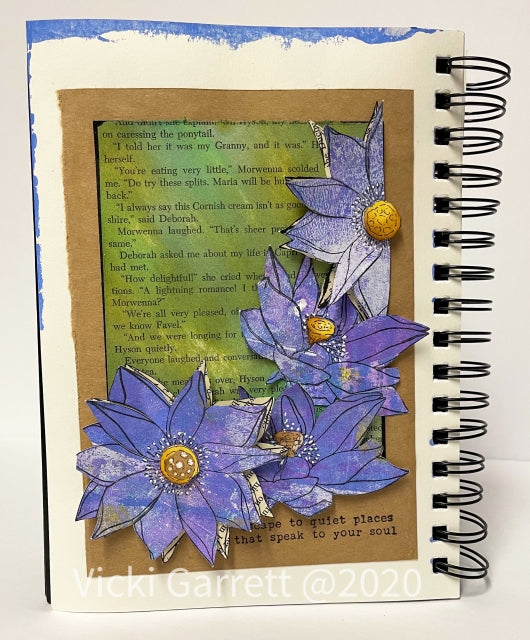 And didn't she explain?
on caressing the ponytail.
"I told her it was my Granny, and it was."
herself.
"You're eating very little," Morwenna scolded
me. "Do try these splits. Maria will be
back."
"I always say this Cornish cream isn't as good
shire," said Deborah.
Morwenna laughed. "That's sheer
same."
Deborah asked me about my life
had met.
"How delightful!" she cried
tions. "A lightning romance! I
Morwenna?"
"We're all very pleased,
we know Favel."
"And we were longing for
Hyson quietly.
Everyone laughed, and
tea.
over, Hyson
very
to quiet places
that speak to your soul
Vicki Garrett @2020